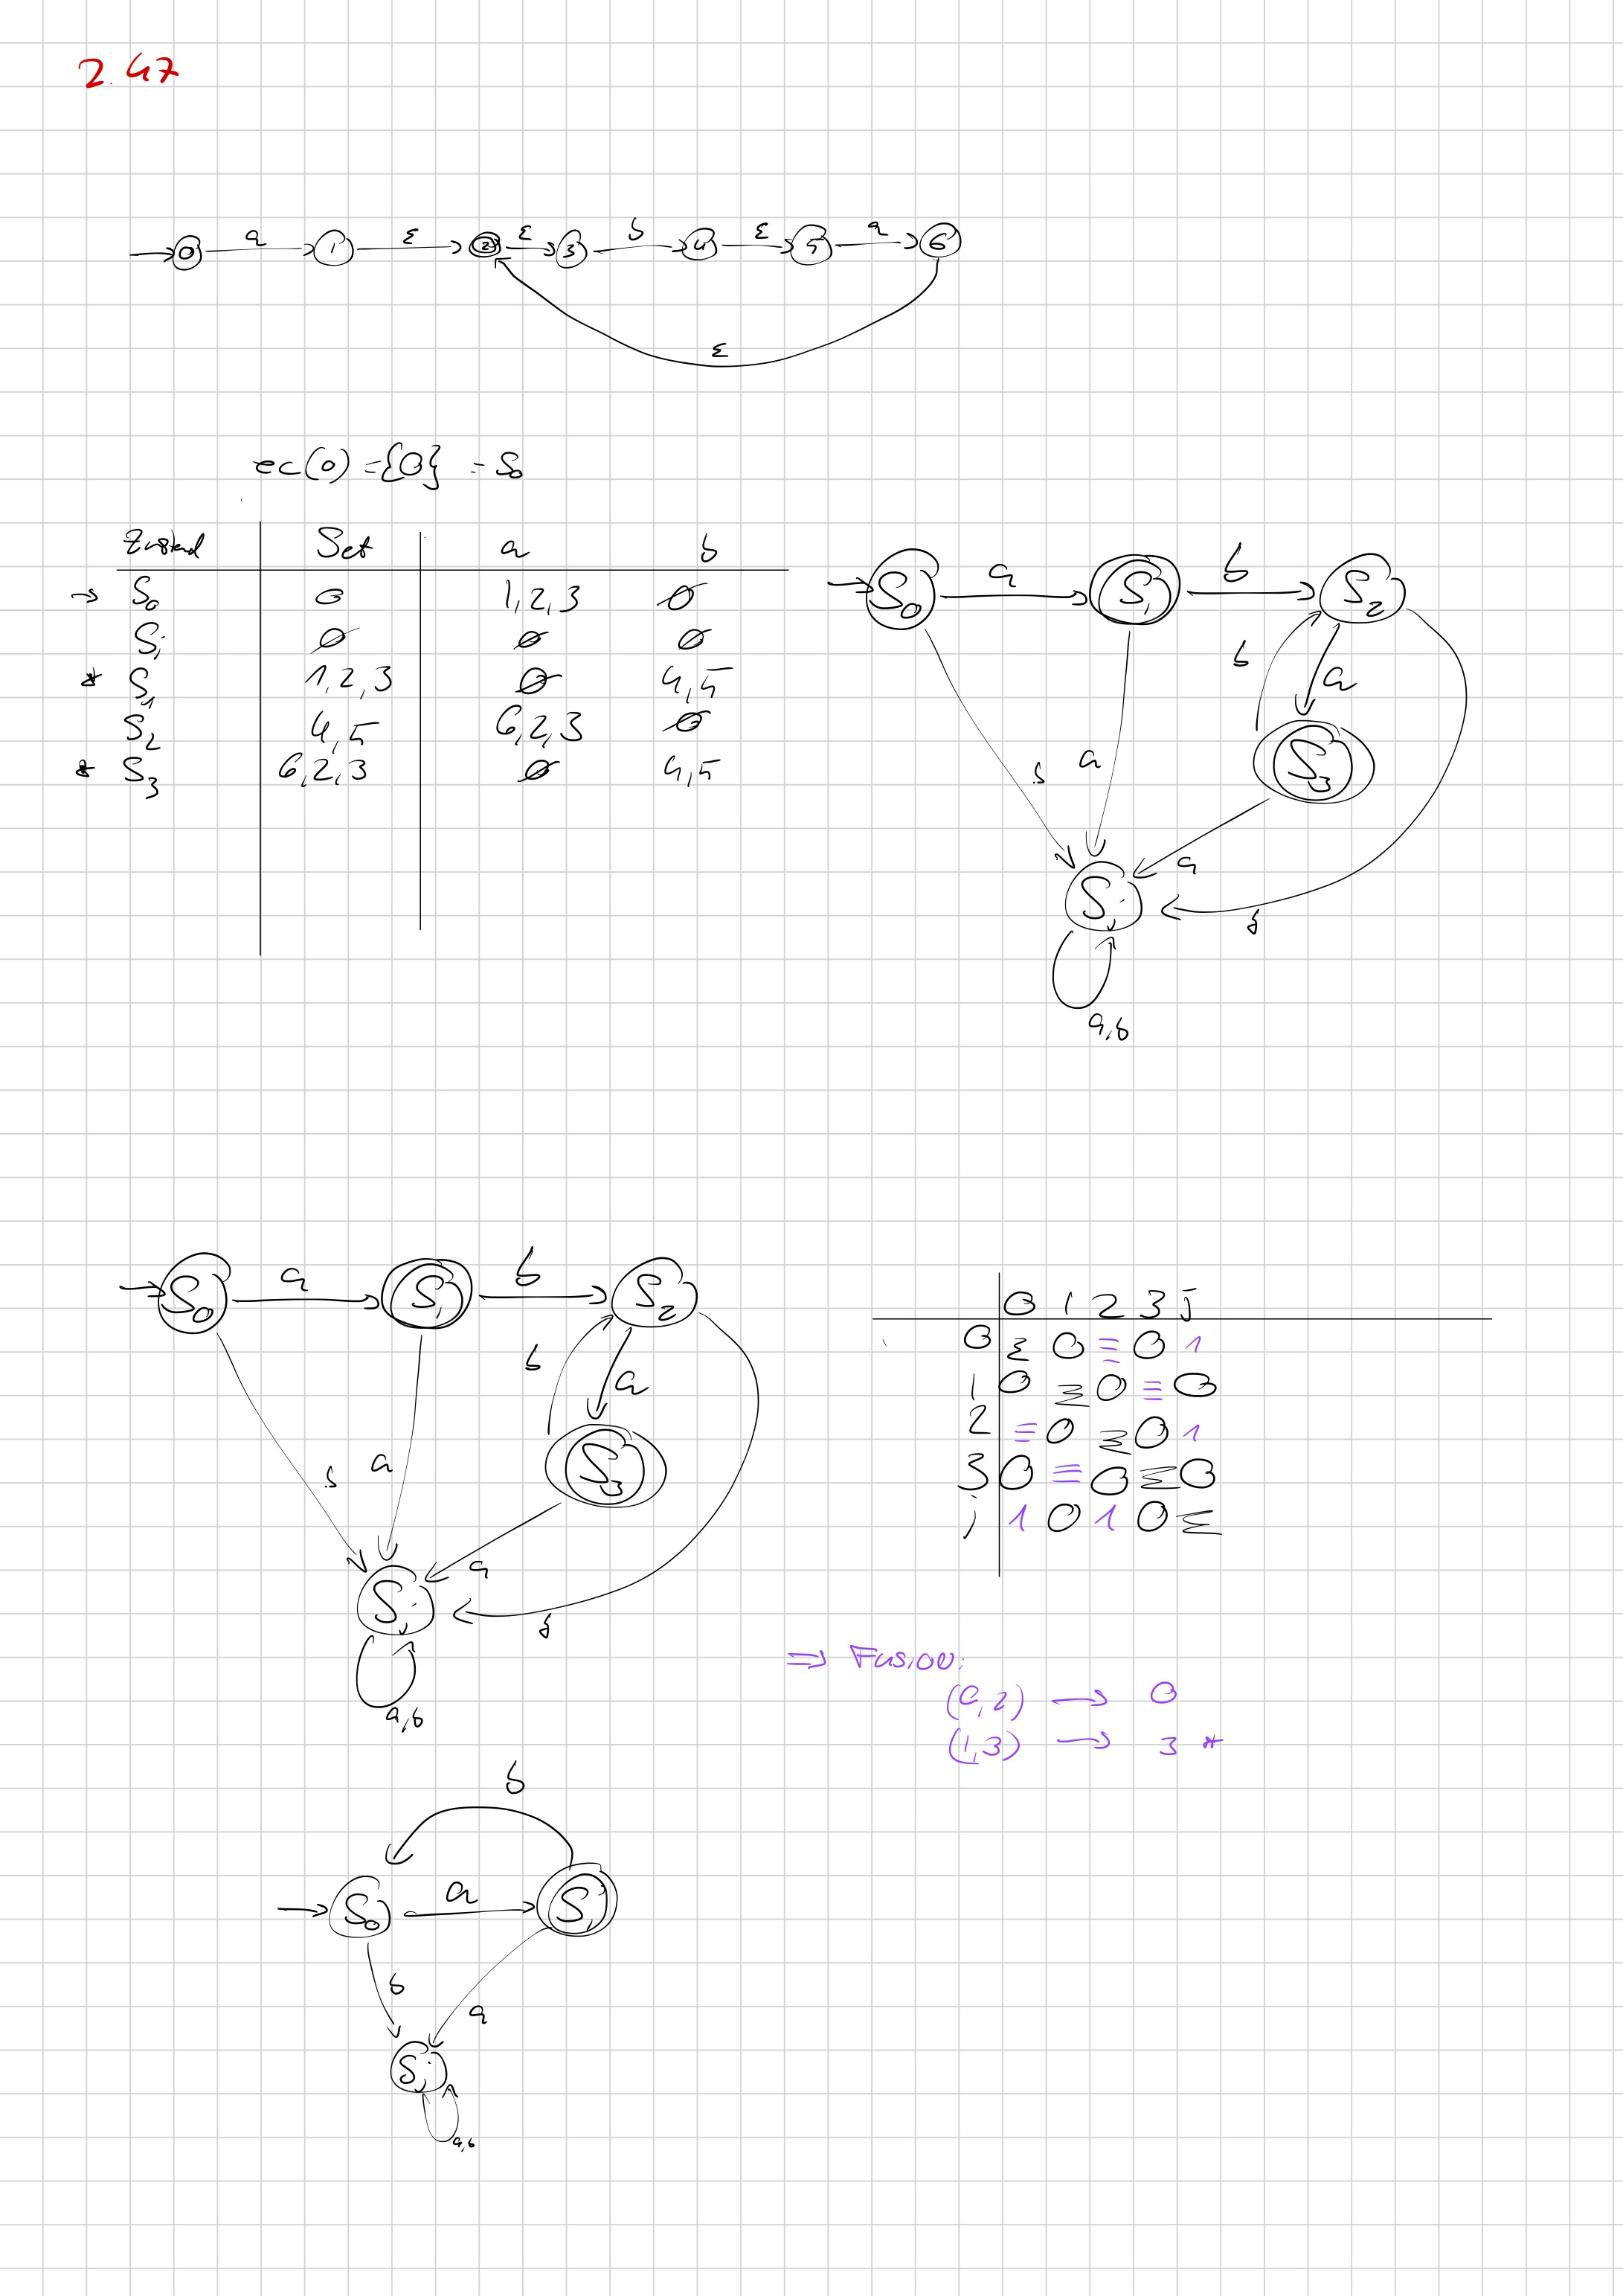 2.47
0 a 1 ε 2 ε 3 b 4 ε 5 a 6
ε
ec(0) = {0} = S0
Zustand Set a b
→ S0 0 1,2,3 ∅
Sj ∅ ∅ ∅
* S1 1,2,3 ∅ 4,5
S2 4,5 6,2,3 ∅
* S3 6,2,3 ∅ 4,5
S0 a S1 b S2
b a
S3
b a
a
Sj
b
a,b
S0 a S1 b S2
b a
S3
b a
a
Sj
b
a,b
0 1 2 3 j
0 ≡ 0 ≡ 0 1
1 0 ≡ 0 ≡ 0
2 ≡ 0 ≡ 0 1
3 0 ≡ 0 ≡ 0
j 1 0 1 0 ≡
⇒ Fusion:
(0,2) → 0
(1,3) → 3 *
b
S0 a S1
b a
Sj
a,b